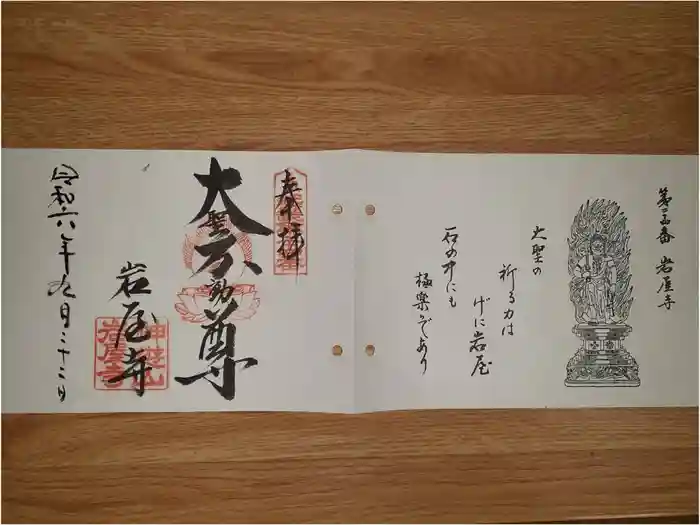 岩屋寺
大聖の
祈る力は
げに岩屋
石の中にも
極楽ぞあり
奉拝
大聖不動尊
岩屋寺
令和六年九月二十二日